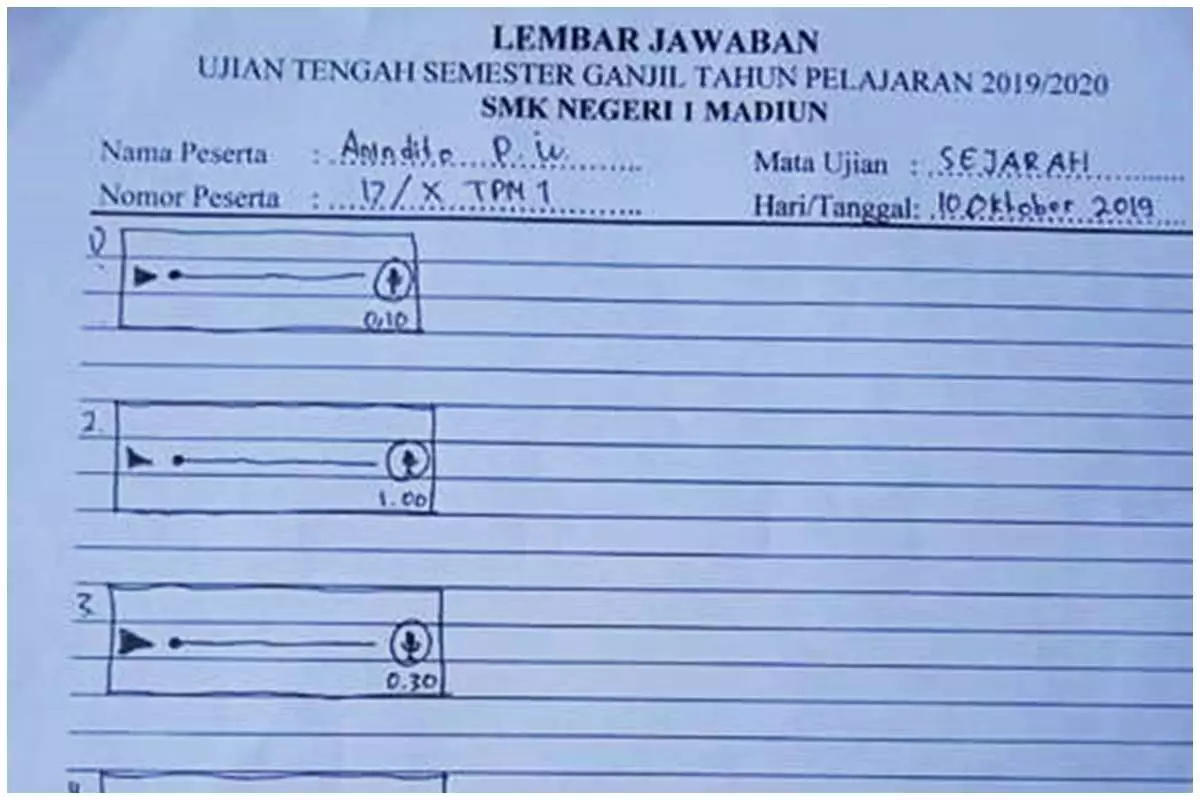 LEMBAR JAWABAN
UJIAN TENGAH SEMESTER GANJIL TAHUN PELAJARAN 2019/2020
SMK NEGERI 1 MADIUN
Nama Peserta : P. W.
Mata Ujian : SEJARAH
Nomor Peserta : 17/X TPM 1
Hari/Tanggal: 10 Oktober 2019
1)
0.10
2.
1.00
3.
0.30
4.